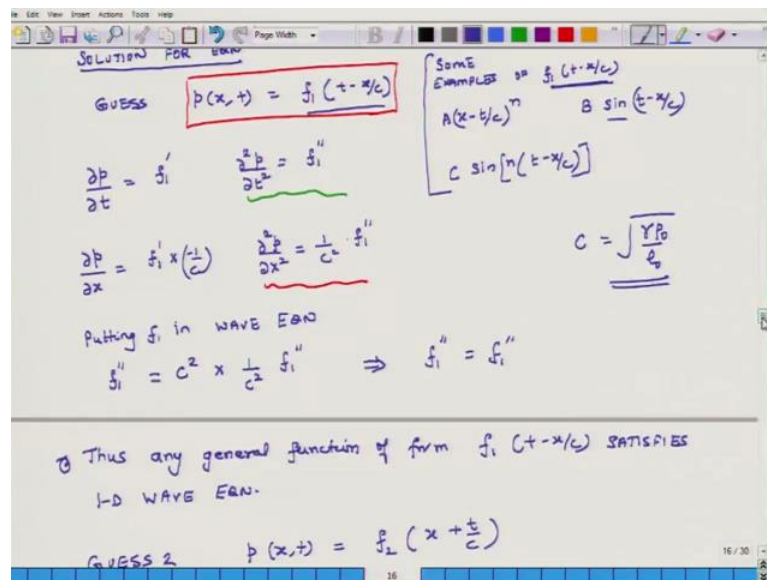 Edit View Insert Actions Tools Help
Page Width
SOLUTION FOR EQN
GUESS p(x,t) = f₁(t-x/c)
SOME
EXAMPLES OF f₁(t-x/c)
A(x-t/c)ⁿ B sin(t-x/c)
C sin[n(t-x/c)]
∂p/∂t = f₁' ∂²p/∂t² = f₁''
∂p/∂x = f₁' × (-1/c) ∂²p/∂x² = 1/c² · f₁''
C = √(γP₀/ρ₀)
Putting f₁ in WAVE EQN
f₁'' = c² × 1/c² f₁'' ⇒ f₁'' = f₁''
Thus any general function of form f₁ (t-x/c) SATISFIES
1-D WAVE EQN.
GUESS 2 p(x,t) = f₂(x + t/c)
16/30
16